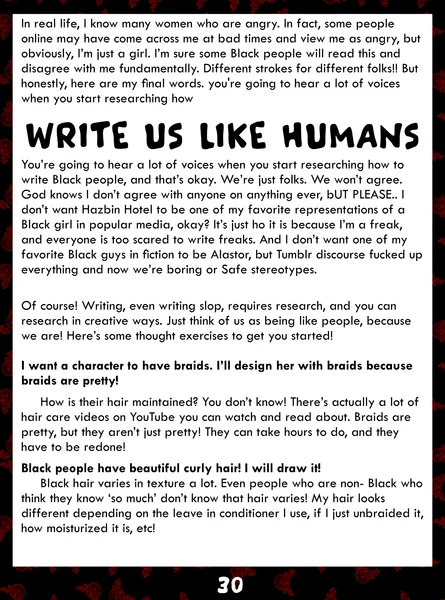 In real life, I know many women who are angry. In fact, some people
online may have come across me at bad times and view me as angry, but
obviously, I'm just a girl. I'm sure some Black people will read this and
disagree with me fundamentally. Different strokes for different folks!! But
honestly, here are my final words. you're going to hear a lot of voices
when you start researching how
WRITE US LIKE HUMANS
You're going to hear a lot of voices when you start researching how to
write Black people, and that's okay. We're just folks. We won't agree.
God knows I don't agree with anyone on anything ever, bUT PLEASE.. I
don't want Hazbin Hotel to be one of my favorite representations of a
Black girl in popular media, okay? It's just ho it is because I'm a freak,
and everyone is too scared to write freaks. And I don't want one of my
favorite Black guys in fiction to be Alastor, but Tumblr discourse fucked up
everything and now we're boring or Safe stereotypes.
Of course! Writing, even writing slop, requires research, and you can
research in creative ways. Just think of us as being like people, because
we are! Here's some thought exercises to get you started!
I want a character to have braids. I'll design her with braids because
braids are pretty!
How is their hair maintained? You don't know! There's actually a lot of
hair care videos on YouTube you can watch and read about. Braids are
pretty, but they aren't just pretty! They can take hours to do, and they
have to be redone!
Black people have beautiful curly hair! I will draw it!
Black hair varies in texture a lot. Even people who are non- Black who
think they know 'so much' don't know that hair varies! My hair looks
different depending on the leave in conditioner I use, if I just unbraided it,
how moisturized it is, etc!
30